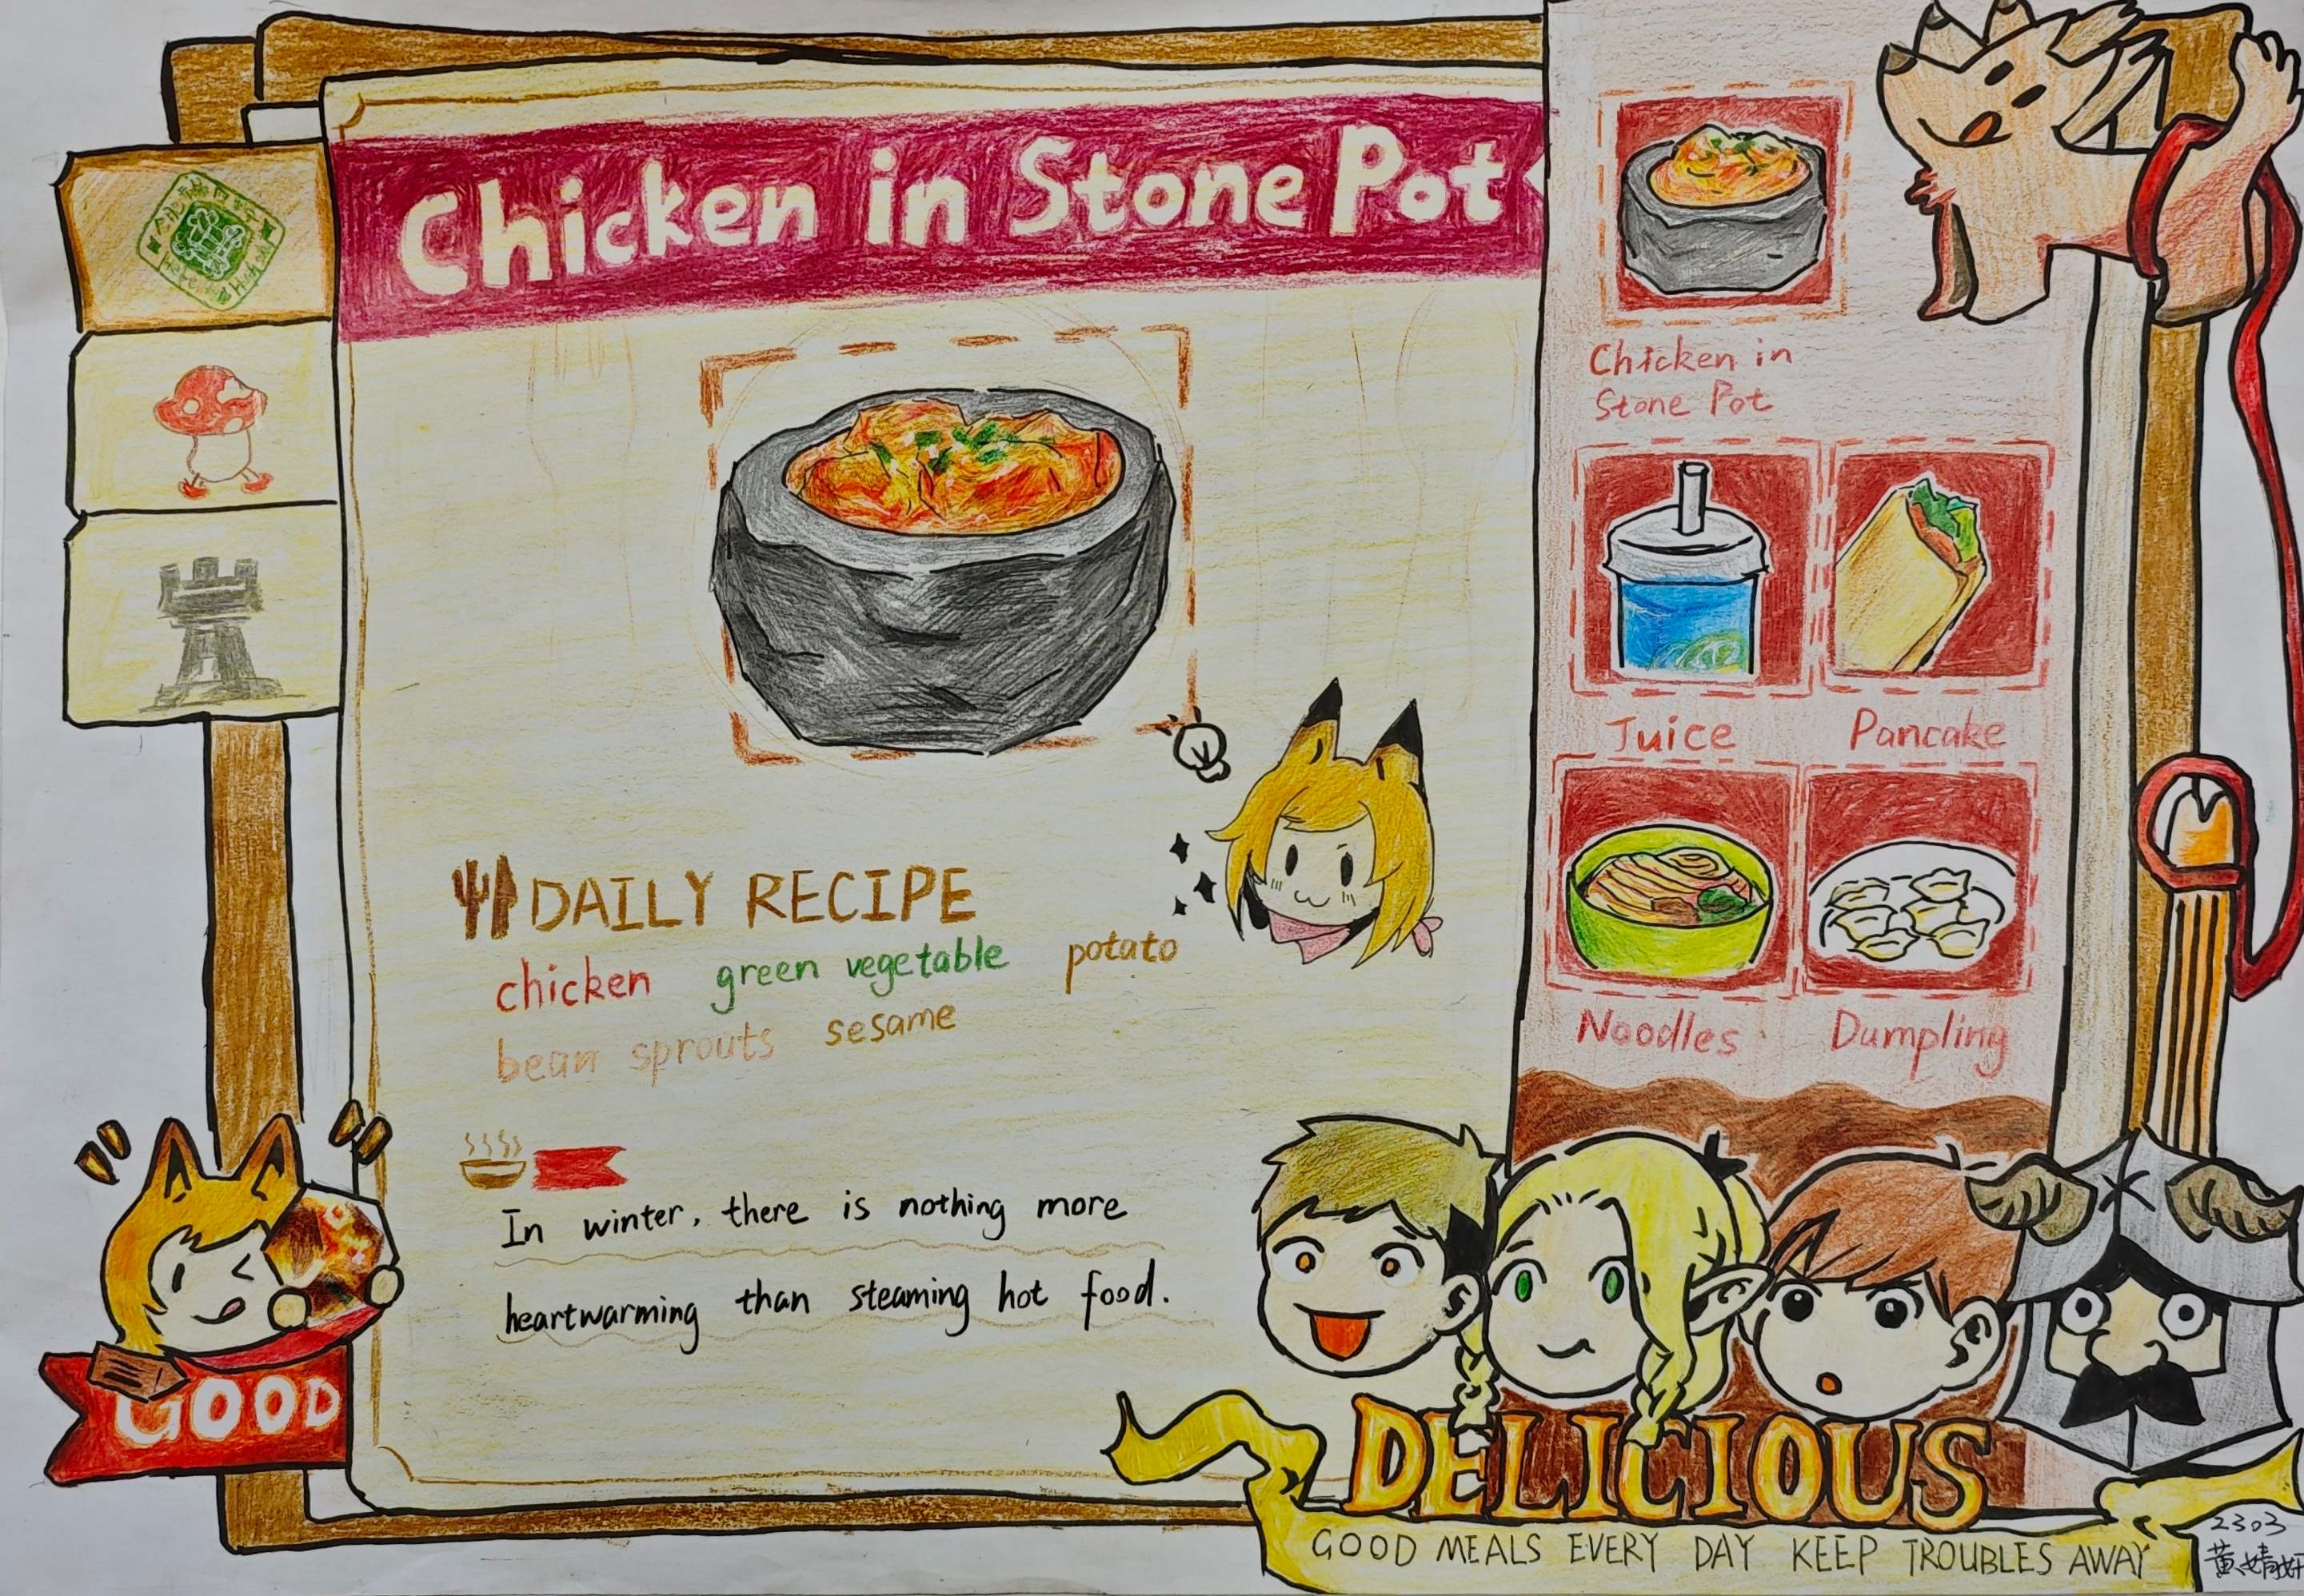 Chicken in Stone Pot
DAILY RECIPE
chicken green vegetable potato
bean sprouts sesame
In winter, there is nothing more
heartwarming than steaming hot food.
GOOD
Chicken in
Stone Pot
Juice Pancake
Noodles Dumpling
DELICIOUS
GOOD MEALS EVERY DAY KEEP TROUBLES AWAY
2303